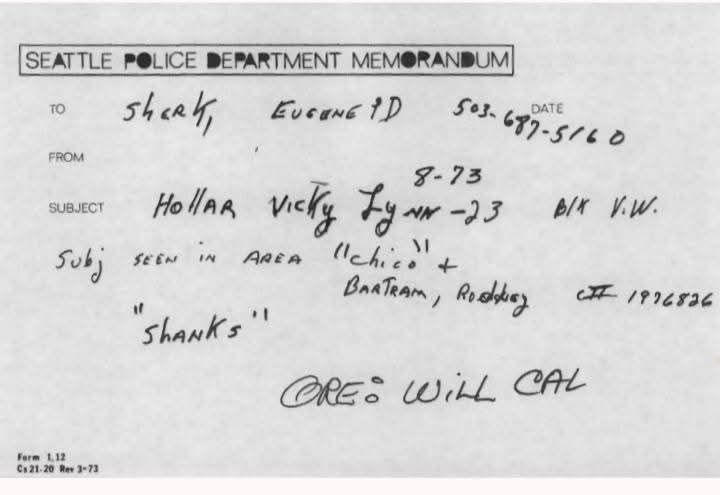 SEATTLE POLICE DEPARTMENT MEMORANDUM
TO Sherk, EUGENE PD 503-687-5160 DATE
FROM
8-73
SUBJECT HOllAR VickY Lynn -23 Blk V.W.
Subj SEEN IN AREA "chico" +
BARTRAM, Rodney CII 1976826
"SHANKS"
ORE: WILL CAL
Form 1.12
Cs 21-20 Rev 3-73